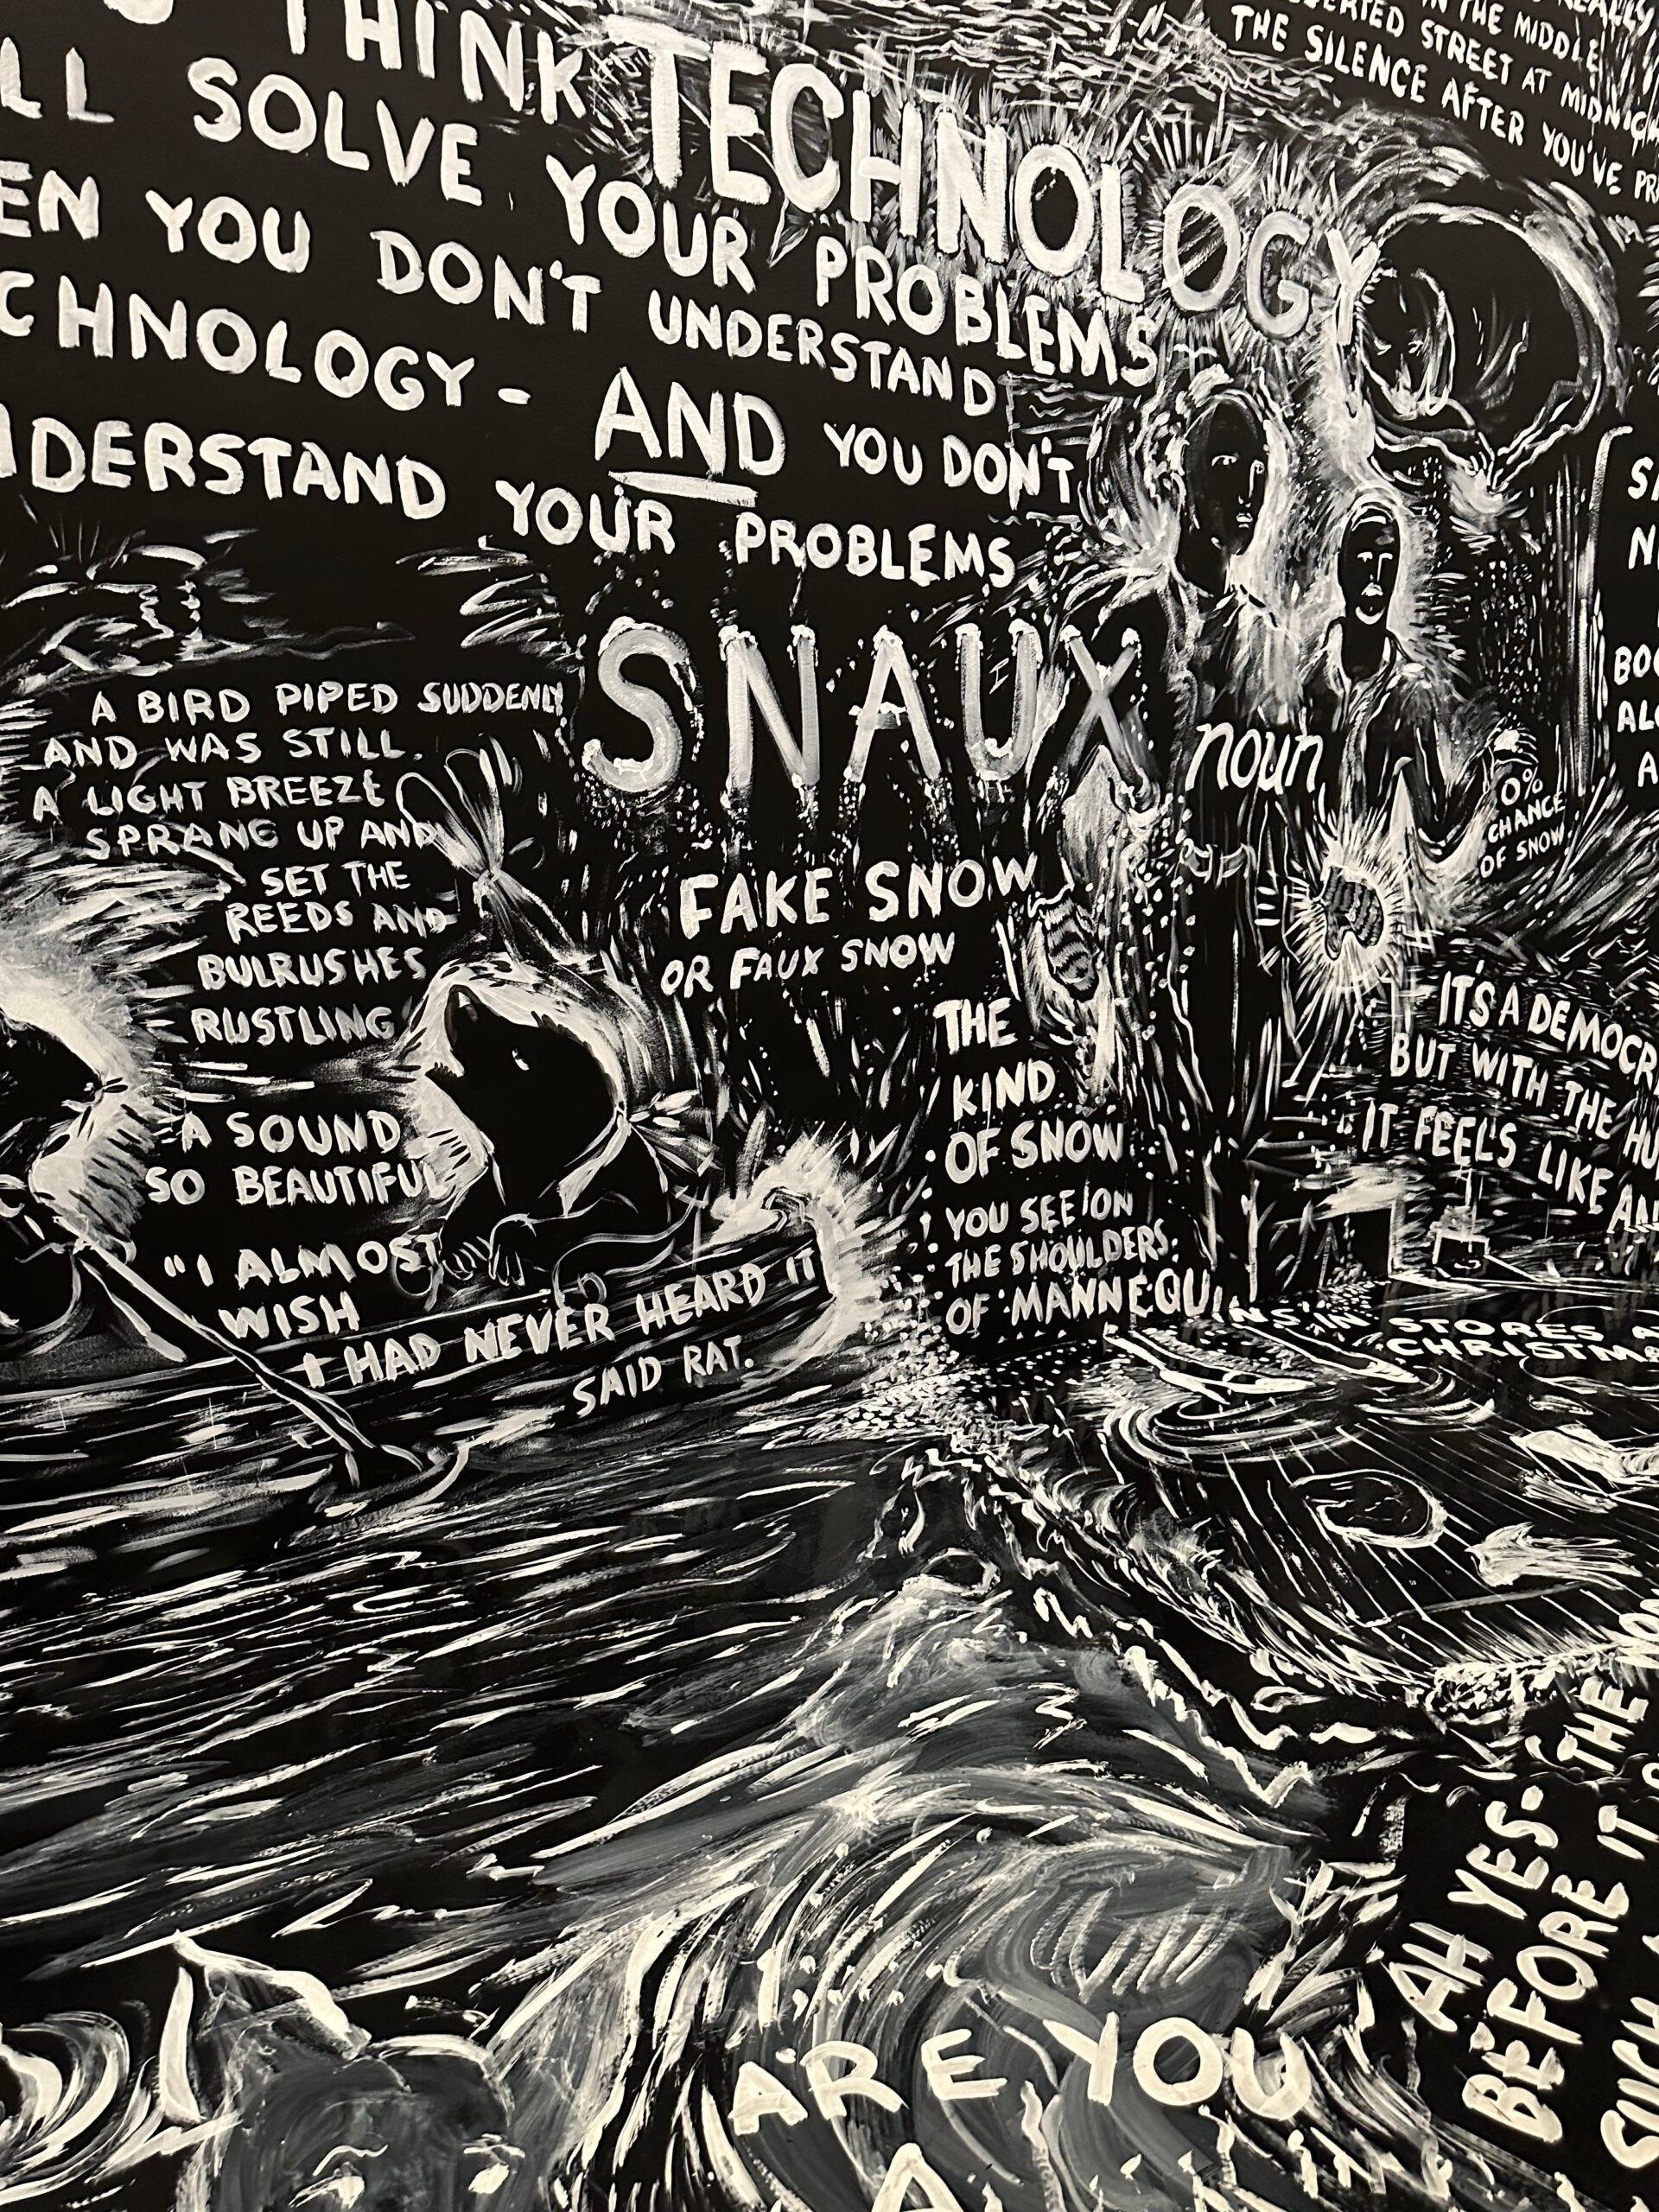 THINK TECHNOLOGY
SOLVE YOUR PROBLEMS
YOU DON'T UNDERSTAND
CHNOLOGY - AND YOU DON'T
DERSTAND YOUR PROBLEMS
IN THE MIDDLE
STREET AT MIDNIGH
THE SILENCE AFTER YOU'VE
SNAUX
noun
FAKE SNOW
OR FAUX SNOW
THE
KIND
OF SNOW
YOU SEE ON
THE SHOULDERS
OF MANNEQUINS IN STORES
CHRISTMA
0%
CHANCE
OF SNOW
A BIRD PIPED SUDDENLY
AND WAS STILL.
A LIGHT BREEZE
SPRANG UP AND
SET THE
REEDS AND
BULRUSHES
RUSTLING
A SOUND
SO BEAUTIFUL
"I ALMOST
WISH
I HAD NEVER HEARD IT
SAID RAT.
IT'S A DEMOCR
BUT WITH THE
IT FEELS LIKE
AH YES- THE
BEFORE IT
SUCH A
ARE YOU
A